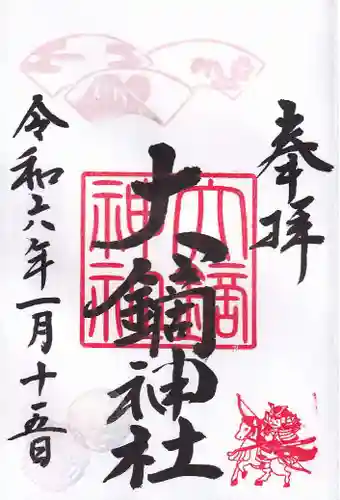 奉拝
大鏑神社
大鏑
神社
令和六年一月十五日